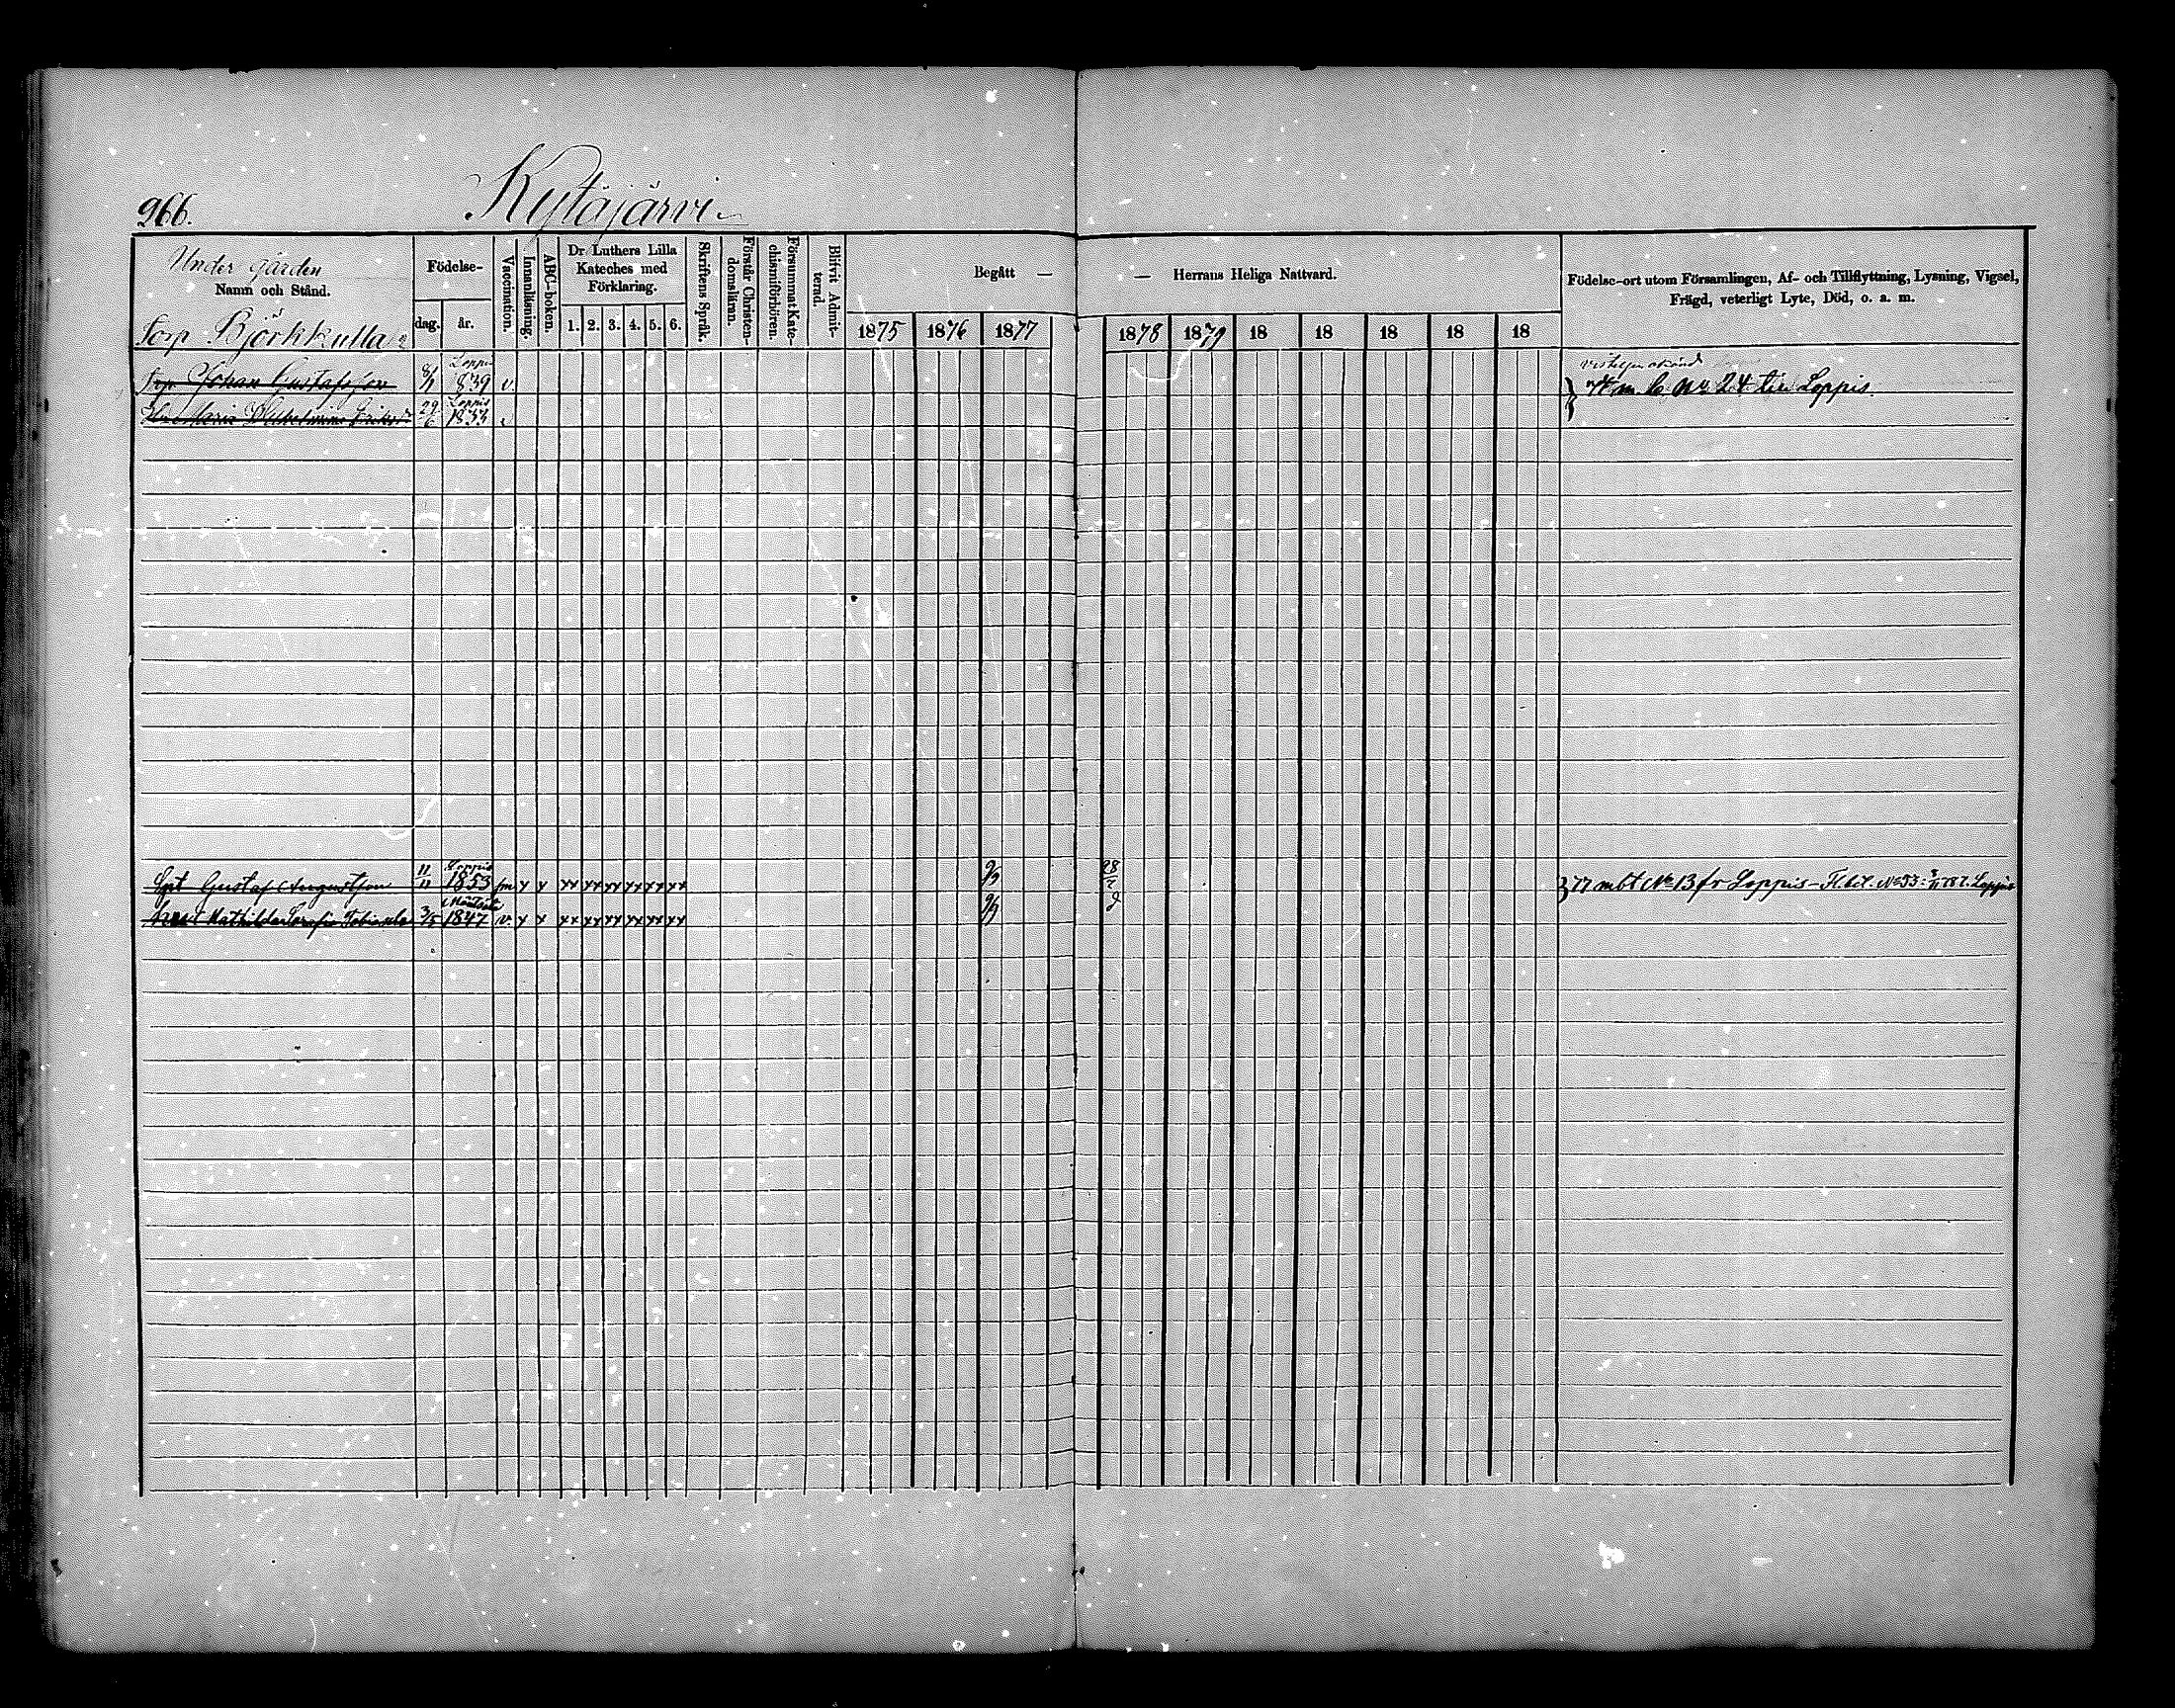 266.
Kytäjärvi
Under gården
Namn och Stånd.
Torp Björkkulla
Födelse-
dag. år.
Vaccination.
Innanläsning.
ABC-boken.
Dr Luthers Lilla
Kateches med
Förklaring.
1. 2. 3. 4. 5. 6.
Skriftens Språk.
Förstår Christen-
domsläran.
Försummat Kate-
chismiförhören.
Blifvit Admit-
terad.
Begått —
— Herrans Heliga Nattvard.
1875 1876 1877 1878 1879 18 18 18 18 18
Födelse-ort utom Församlingen, Af- och Tillflyttning, Lysning, Vigsel,
Frägd, veterligt Lyte, Död, o. a. m.
Loppis
Torp. Johan Gustafsson 8/1 839 v.
m. b. No 24 till Loppis.
Loppis
Maria Wilhelmina Eriksd 29/6 1833 v
Loppis
Gustaf Augustsson 11/11 1853 x x xx xx xx xx xx xx 9/9 28/2
77 mbt No 13 fr Loppis - Fl. bet. No 53 Loppis
Mathilda Serafia 3/5 1847 v. x x xx xx xx xx xx xx